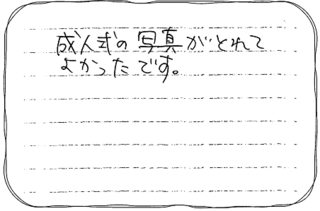 成人式の写真がとれて
よかったです。